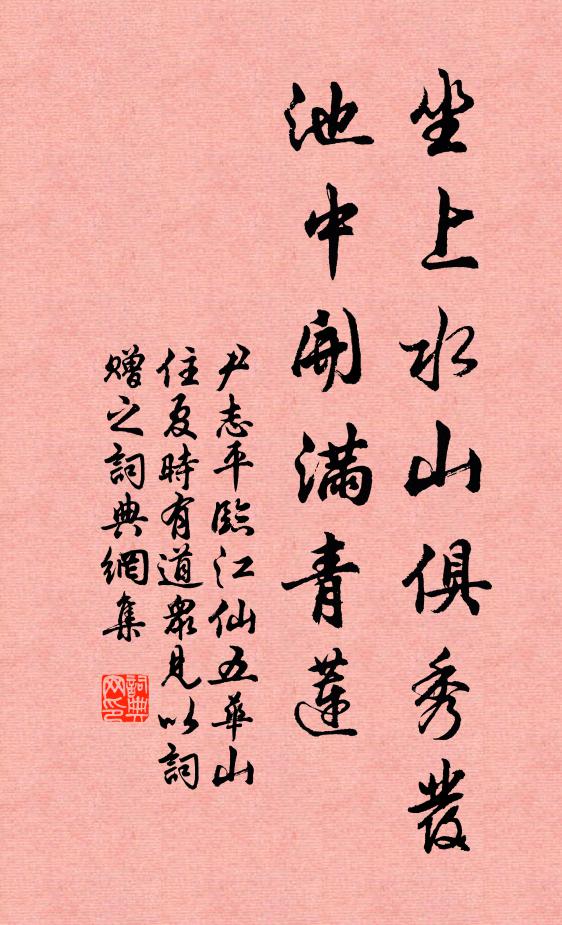 坐上水山俱秀發
池中開滿青蓮
尹志平臨江仙五華山
住夏時有道衆見以詞
贈之詞典網集
詞典網印